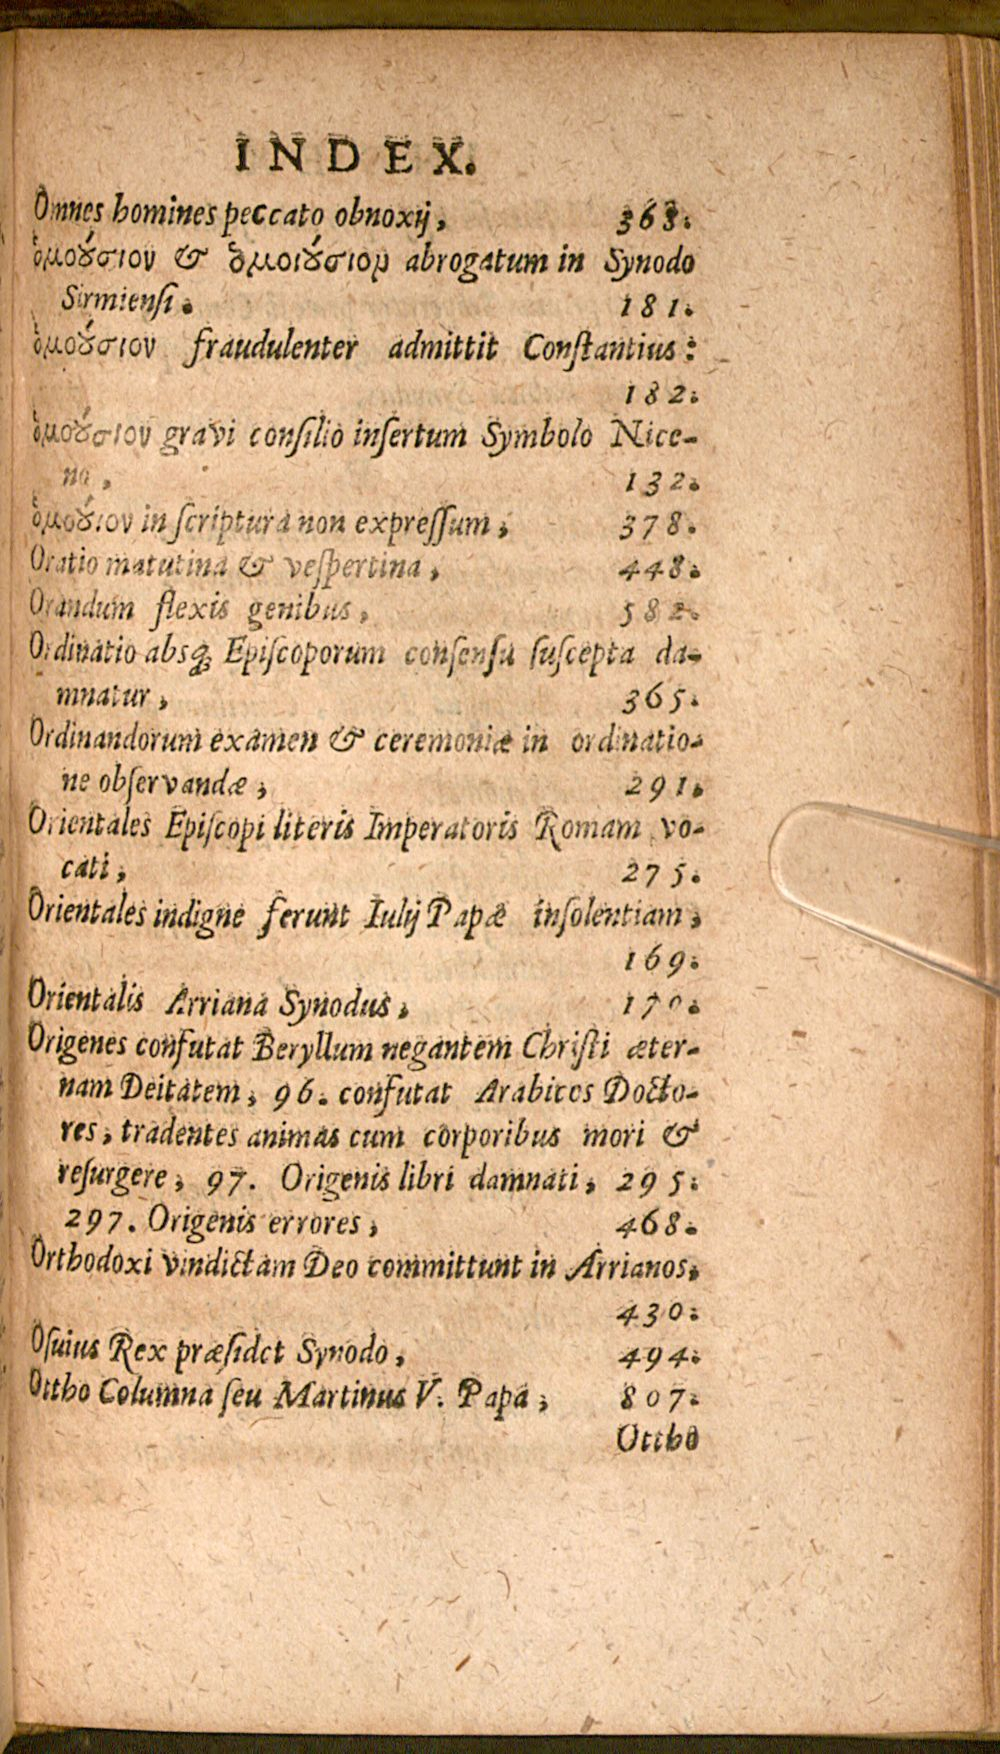 INDEX.
Omnes homines peccato obnoxij, 363.
ὁμούσιον & ὁμοιούσιον abrogatum in Synodo
Sirmiensi. 181.
ὁμούσιον fraudulenter admittit Constantius:
182.
ὁμούσιον gravi consilio insertum Symbolo Nice-
no, 132.
ὁμούσιον in scriptura non expressum, 378.
Oratio matutina & vespertina, 448.
Orandum flexis genibus, 582.
Ordinatio absq; Episcoporum consensu suscepta da-
mnatur, 365.
Ordinandorum examen & ceremoniæ in ordinatio-
ne observandæ, 291.
Orientales Episcopi literis Imperatoris Romam vo-
cati, 275.
Orientales indigne ferunt Iulij Papæ insolentiam,
169.
Orientalis Arriana Synodus, 170.
Origenes confutat Beryllum negantem Christi æter-
nam Deitatem, 96. confutat Arabicos Docto-
res, tradentes animas cum corporibus mori &
resurgere, 97. Origenis libri damnati, 295.
297. Origenis errores, 468.
Orthodoxi vindictam Deo committunt in Arrianos,
430.
Osuius Rex præsidet Synodo, 494.
Ottho Columna seu Martinus V. Papa, 807.
Ottho